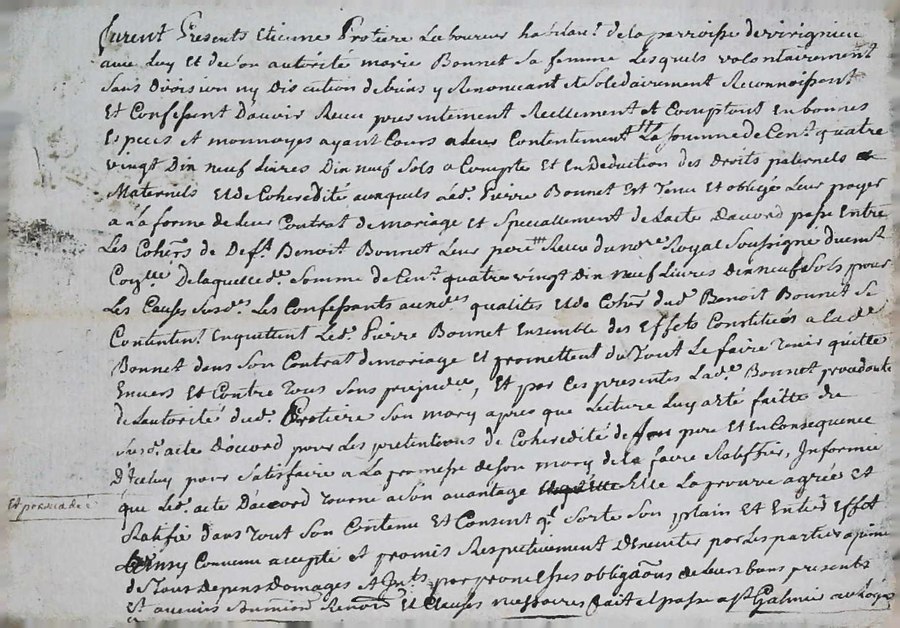 furent Presents Etienne Protiere Laboureur habitant. de la parroisse de virignieu
avec Luy et de son autorité marie Bonnet Sa femme Lesquels volontairement
Sans Division ny Discution de biens y Renoncant et Solidairement Reconnoissent
Et Confessent D'avoir Receu presentement Reellement et Comptant En bonnes
Especes et monnoyes ayant Cours a Leur Contentement La Somme de Cent quatre
vingt Dix neuf Livres Dix neuf Sols a Compte Et En Deduction des Droits paternels et
Maternels Et de Coheredité auxquels Led. Pierre Bonnet Est Tenu Et obligé Leur payer
a la forme de Leur Contrat de mariage Et Speciallement de L'acte D'acord passé Entre
Les Cohers. de Deft. Benoit Bonnet Leur pere Receu du nore. Royal Soussigné duemt.
De laquelle d. Somme de Cent. quatre vingt Dix neuf Livres dix neuf Sols pour
Les Causes Susd. Les Confessants auxd. qualités Et de Coher. dud. Benoit Bonnet Se
Contentent. Enquittent Led. Pierre Bonnet Ensemble des Effets Constitués a lade.
Bonnet dans Son Contrat de mariage Et promettent du Tout Le faire Tenir quitte
Envers Et Contre Tous Sans prejudice, Et par Ces presentes Lad. Bonnet procedante
de L'autorité dud. Protiere Son mary apres que Lecture Luy a été faitte du
Susd. acte D'acord pour Les pretentions de Coheredité de Son pere Et En Consequence
D'iceluy pour Satisfaire a La promesse de Son mary de la faire Ratiffier, Informée
Et persuadée
que Led. acte D'acord Tourne a Son avantage Elle La prouve agrée Et
Ratifie dans Tout Son Contenu Et Consent ql. Sorte Son plain Et Entier Effet
Ainsy Convenu accepté et promis Respectivement D'executer par Les parties a peine
de Tous depens Domages Et Intts. par promesses obligaons. de Leurs biens presents
Et avenirs Renon. Et Clauses necessaires fait et passé a St Galmier